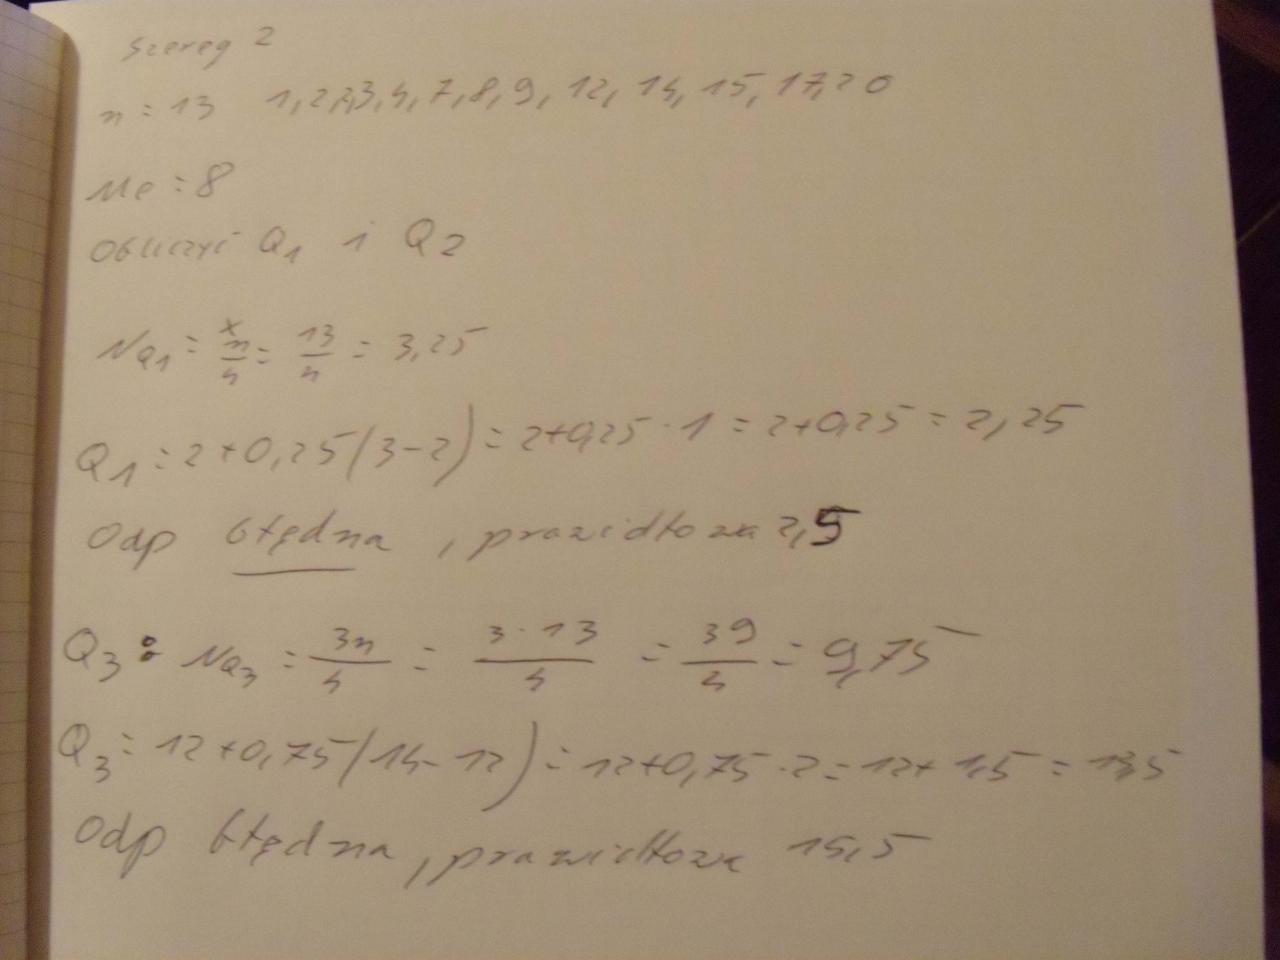 Szereg 2
n = 13 1,2,2,3,4,7,8,9,12,14,15,17,20
Me = 8
Obliczyć Q1 i Q2
NQ1 = n/4 = 13/4 = 3,25
Q1 = 2+0,25(3-2) = 2+0,25·1 = 2+0,25 = 2,25
Odp błędna, prawidłowa 2,5
Q3: NQ3 = 3n/4 = 3·13/4 = 39/4 = 9,75
Q3 = 12+0,75(14-12) = 12+0,75·2 = 12+1,5 = 13,5
Odp błędna, prawidłowa 14,5